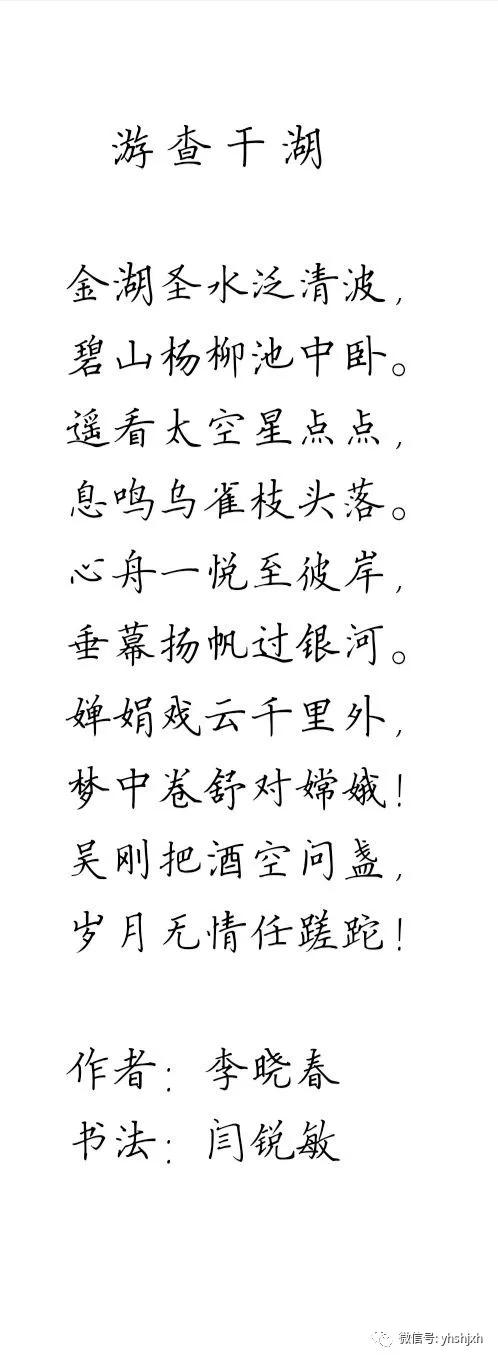 游查干湖
金湖圣水泛清波，
碧山杨柳池中卧。
遥看太空星点点，
息鸣乌雀枝头落。
心舟一悦至彼岸，
垂幕扬帆过银河。
婵娟戏云千里外，
梦中卷舒对嫦娥！
吴刚把酒空问盏，
岁月无情任蹉跎！
作者：李晓春
书法：闫锐敏
微信号: yhshjxh